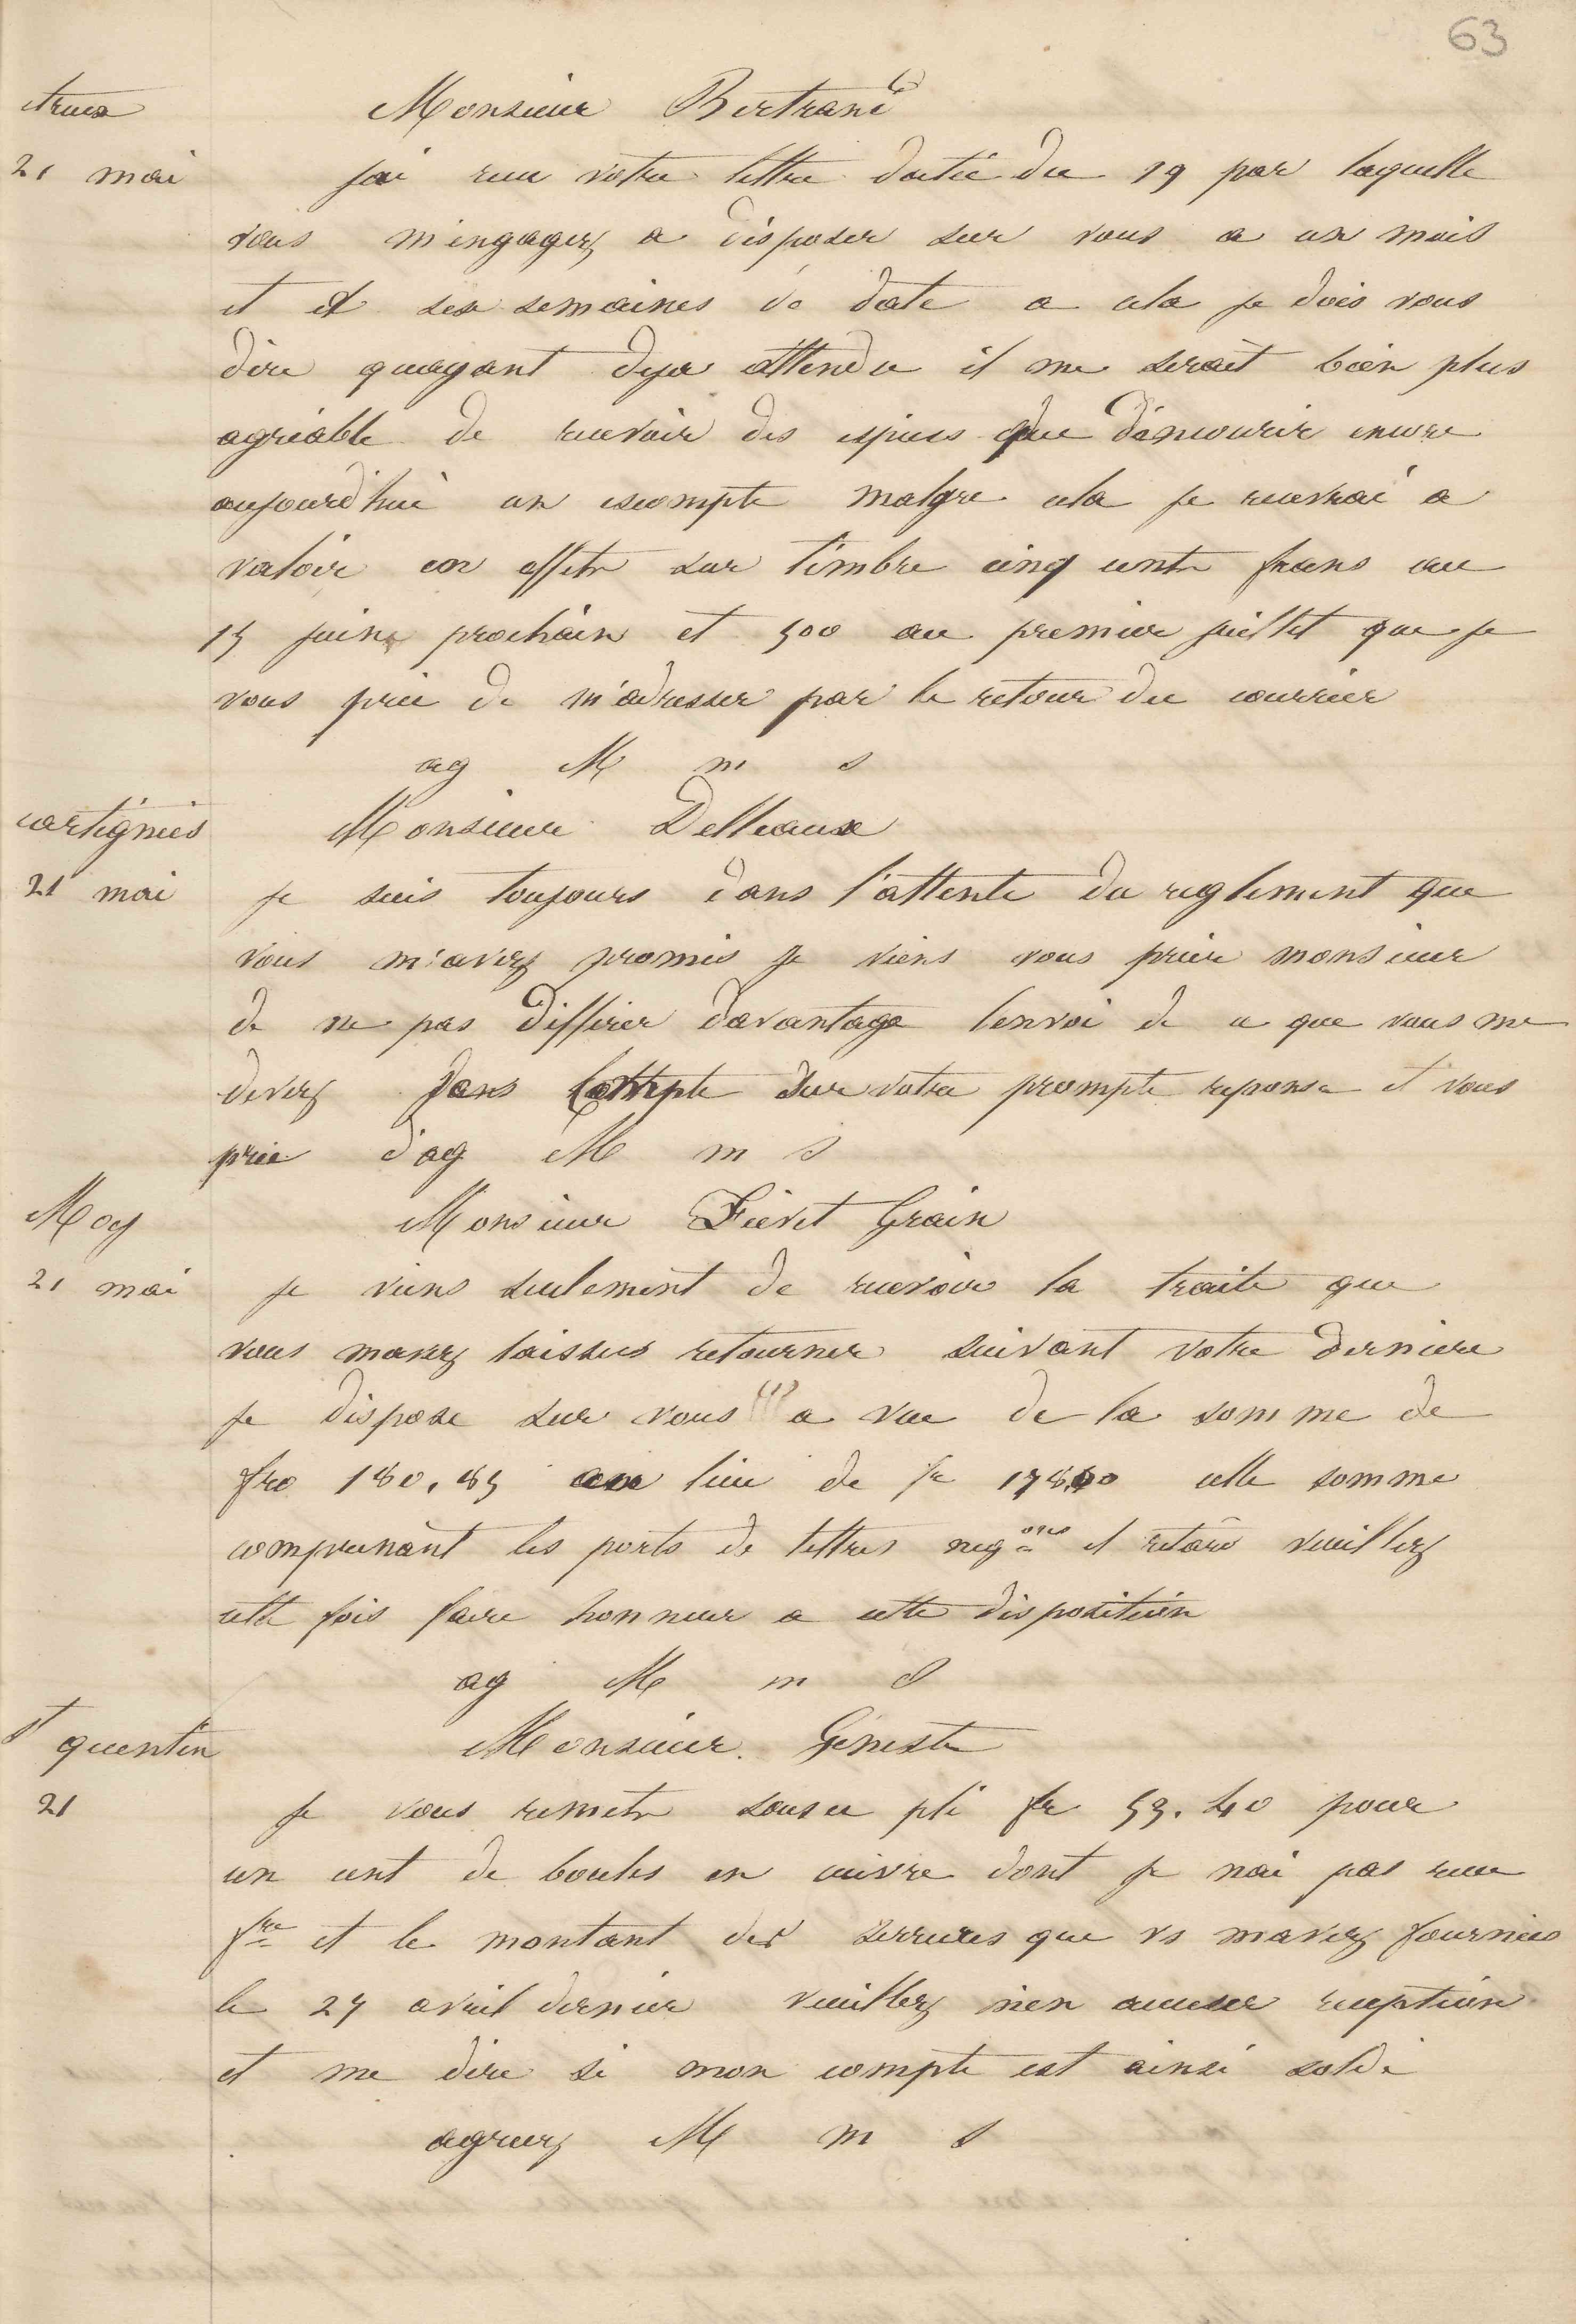 63
etreux
Monsieur Bertrand
21 mai
jai recu votre lettre datée du 19 par laquelle
vous m'engagez a disposer sur vous a un mois
et et six semaines de date a cela je dois vous
dire qu'ayant deja attendu il me serait bien plus
agréable de recevoir des especes que d'encourir encore
aujourd'hui un escompte malgre cela je recevrai a
valoir en effets sur timbre cinq cents francs au
15 juin prochain et 500 au premier juillet que je
vous prie de m'adresser par le retour du courrier
ag M m s
cartignies
Monsieur Delleaux
21 mai
je suis toujours dans l'attente du reglement que
vous m'avez promis je viens vous prier monsieur
de ne pas differer davantage lenvoi de ce que vous me
devez dans compte sur votre prompte reponse et vous
prie d'ag M m s
Moy
Monsieur Fievet Grain
21 mai
je viens seulement de recevoir la traite que
vous mavez laissee retourner suivant votre derniere
je dispose sur vous a vue de la somme de
frs 180.85 au lieu de fr 178.50 cette somme
comprenant les ports de lettres neg ons et retard veuillez
cette fois faire honneur a cette disposition
ag M m s
St quentin
Monsieur Geneste
21
je vous remets sous ce pli fr 59.40 pour
un cent de boules en cuivre dont je nai pas recu
fre et le montant des serrures que vs mavez fournies
le 27 avril dernier veuillez m'en accuser reception
et me dire si mon compte est ainsi soldé
agreez M m s